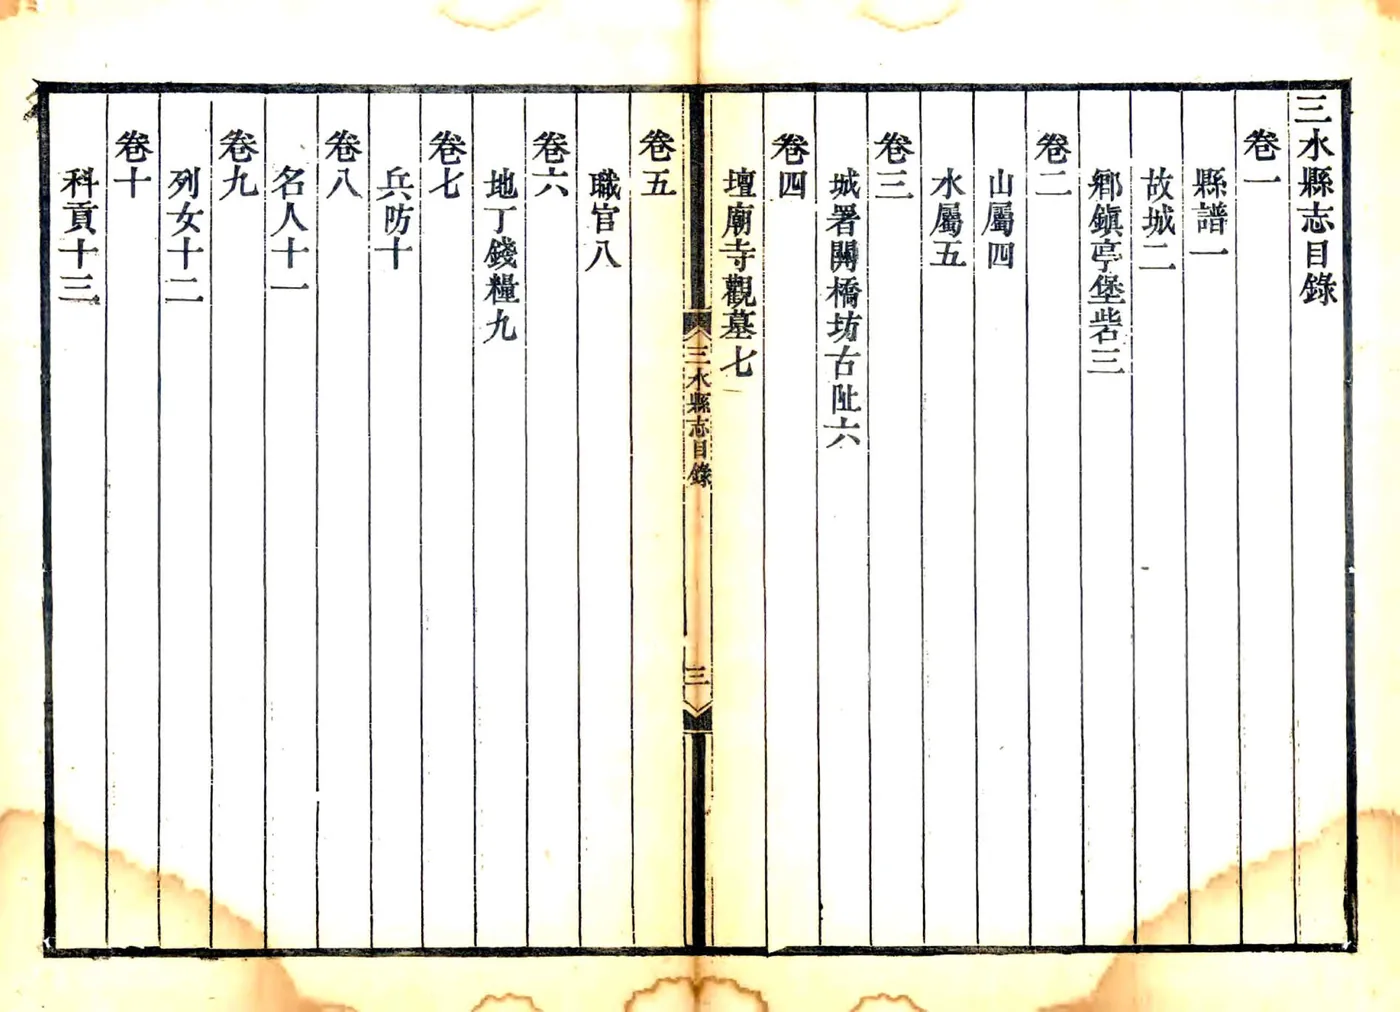 三水縣志目錄
卷一
縣譜一
故城二
鄉鎮亭堡砦三
卷二
山屬四
水屬五
卷三
城署關橋坊古阯六
卷四
壇廟寺觀墓七
三水縣志目錄
三
卷五
職官八
卷六
地丁錢糧九
卷七
兵防十
卷八
名人十一
卷九
列女十二
卷十
科貢十三